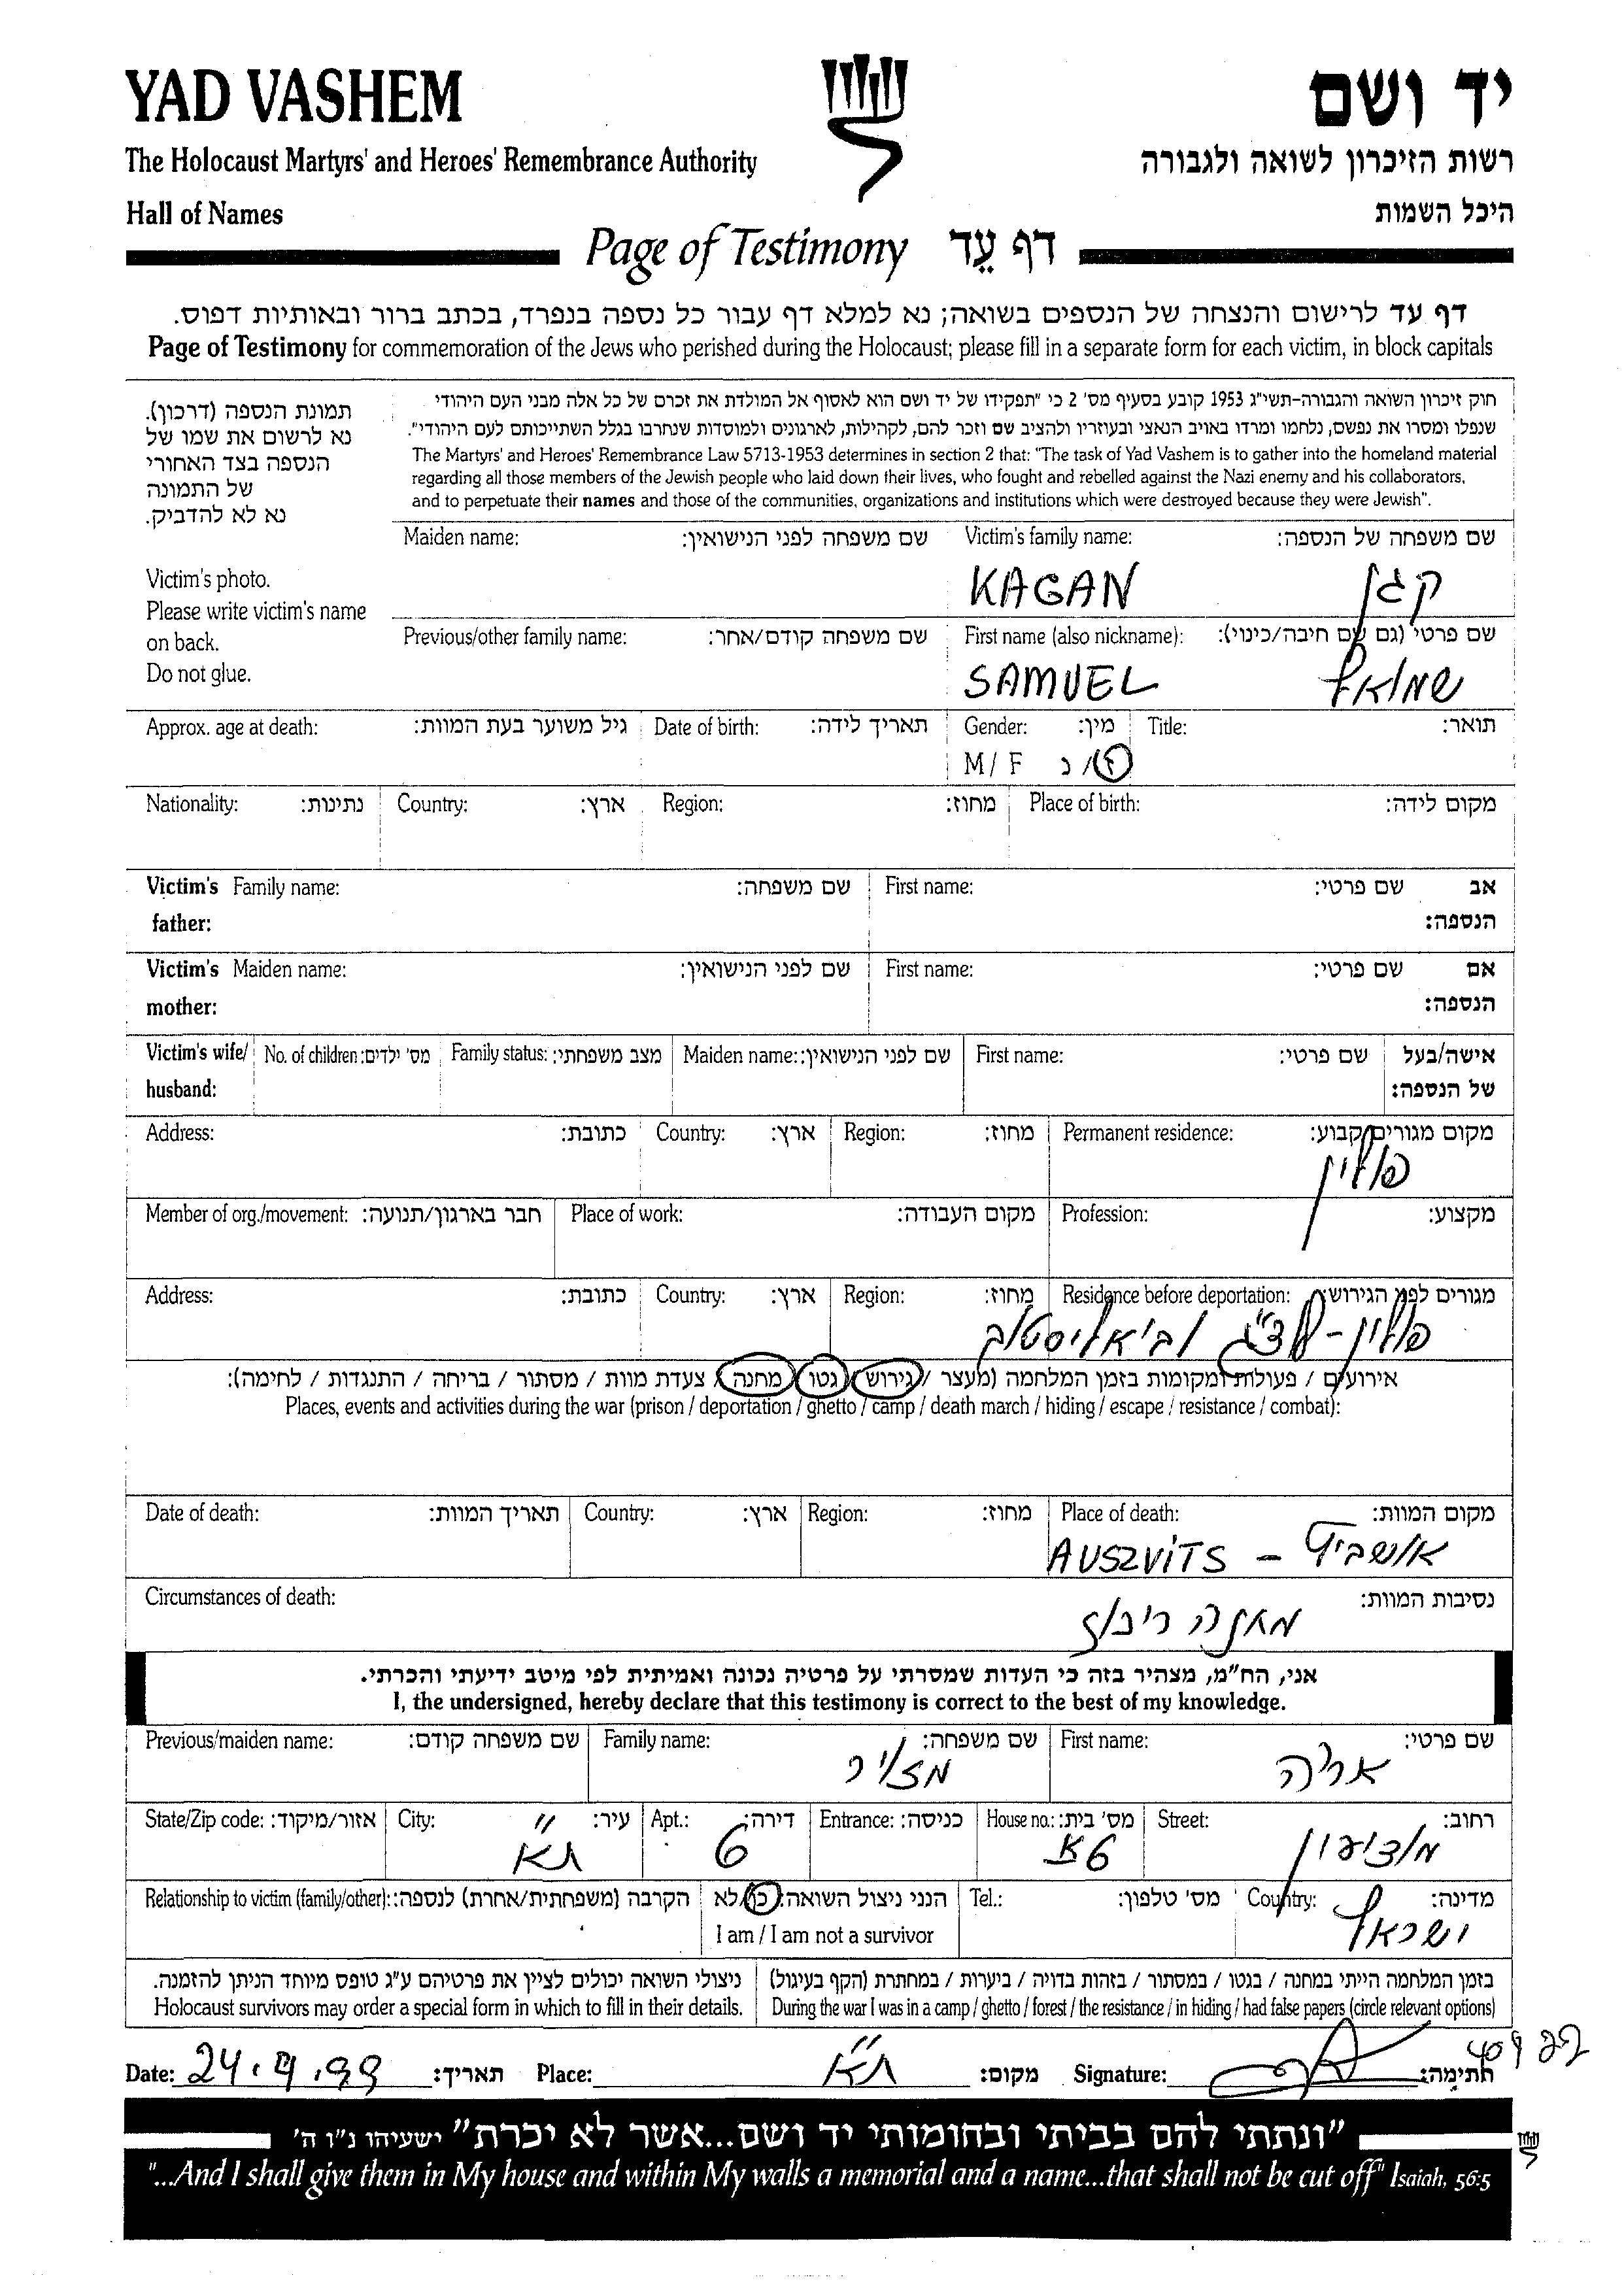 YAD VASHEM
יד ושם
The Holocaust Martyrs' and Heroes' Remembrance Authority
רשות הזיכרון לשואה ולגבורה
Hall of Names
היכל השמות
Page of Testimony דף עֵד
דף עד לרישום והנצחה של הנספים בשואה; נא למלא דף עבור כל נספה בנפרד, בכתב ברור ובאותיות דפוס.
Page of Testimony for commemoration of the Jews who perished during the Holocaust; please fill in a separate form for each victim, in block capitals
תמונת הנספה (דרכון).
נא לרשום את שמו של
הנספה בצד האחורי
של התמונה
נא לא להדביק.
Victim's photo.
Please write victim's name
on back.
Do not glue.
חוק זיכרון השואה והגבורה-תשי"ג 1953 קובע בסעיף מס' 2 כי "תפקידו של יד ושם הוא לאסוף אל המולדת את זכרם של כל אלה מבני העם היהודי
שנפלו ומסרו את נפשם, נלחמו ומרדו באויב הנאצי ובעוזריו ולהציב שם וזכר להם, לקהילות, לארגונים ולמוסדות שנחרבו בגלל השתייכותם לעם היהודי".
The Martyrs' and Heroes' Remembrance Law 5713-1953 determines in section 2 that: "The task of Yad Vashem is to gather into the homeland material
regarding all those members of the Jewish people who laid down their lives, who fought and rebelled against the Nazi enemy and his collaborators,
and to perpetuate their names and those of the communities, organizations and institutions which were destroyed because they were Jewish".
Maiden name: שם משפחה לפני הנישואין: Victim's family name: שם משפחה של הנספה:
KAGAN קגן
Previous/other family name: שם משפחה קודם/אחר: First name (also nickname): שם פרטי (גם שם חיבה/כינוי):
SAMUEL שמואל
Approx. age at death: גיל משוער בעת המוות: Date of birth: תאריך לידה: Gender: מין: Title: תואר:
M / F ז / נ
Nationality: נתינות: Country: ארץ: Region: מחוז: Place of birth: מקום לידה:
Victim's Family name: שם משפחה: First name: שם פרטי: אב
father: הנספה:
Victim's Maiden name: שם לפני הנישואין: First name: שם פרטי: אם
mother: הנספה:
Victim's wife/ No. of children: מס' ילדים: Family status: מצב משפחתי: Maiden name: שם לפני הנישואין: First name: שם פרטי: אישה/בעל
husband: של הנספה:
Address: כתובת: Country: ארץ: Region: מחוז: Permanent residence: מקום מגורים קבוע:
פולין
Member of org./movement: חבר בארגון/תנועה: Place of work: מקום העבודה: Profession: מקצוע:
Address: כתובת: Country: ארץ: Region: מחוז: Residence before deportation: מגורים לפני הגירוש:
פולין - לודג' וביאליסטוק
אירועים / פעולות ומקומות בזמן המלחמה (מעצר / גירוש / גטו / מחנה / צעדת מוות / מסתור / בריחה / התנגדות / לחימה):
Places, events and activities during the war (prison / deportation / ghetto / camp / death march / hiding / escape / resistance / combat):
Date of death: תאריך המוות: Country: ארץ: Region: מחוז: Place of death: מקום המוות:
AUSZVITS - אושביץ
Circumstances of death: נסיבות המוות:
מחנה ריכוז
אני, הח"מ, מצהיר בזה כי העדות שמסרתי על פרטיה נכונה ואמיתית לפי מיטב ידיעתי והכרתי.
I, the undersigned, hereby declare that this testimony is correct to the best of my knowledge.
Previous/maiden name: שם משפחה קודם: Family name: שם משפחה: First name: שם פרטי:
מזור אריה
State/Zip code: אזור/מיקוד: City: עיר: Apt.: דירה: Entrance: כניסה: House no.: מס' בית: Street: רחוב:
ת"א 6 מודיעין
Relationship to victim (family/other): הקרבה (משפחתית/אחרת) לנספה: הנני ניצול השואה: כן/לא Tel.: מס' טלפון: Country: מדינה:
I am / I am not a survivor
ישראל
ניצולי השואה יכולים לציין את פרטיהם ע"ג טופס מיוחד הניתן להזמנה. בזמן המלחמה הייתי במחנה / בגטו / במסתור / בזהות בדויה / ביערות / במחתרת (הקף בעיגול)
Holocaust survivors may order a special form in which to fill in their details. During the war I was in a camp / ghetto / forest / the resistance / in hiding / had false papers (circle relevant options)
Date: 24.4.99 תאריך: Place: ת"א מקום: Signature: חתימה:
"ונתתי להם בביתי ובחומותי יד ושם...אשר לא יכרת" ישעיהו נ"ו ה'
"...And I shall give them in My house and within My walls a memorial and a name...that shall not be cut off" Isaiah, 56:5